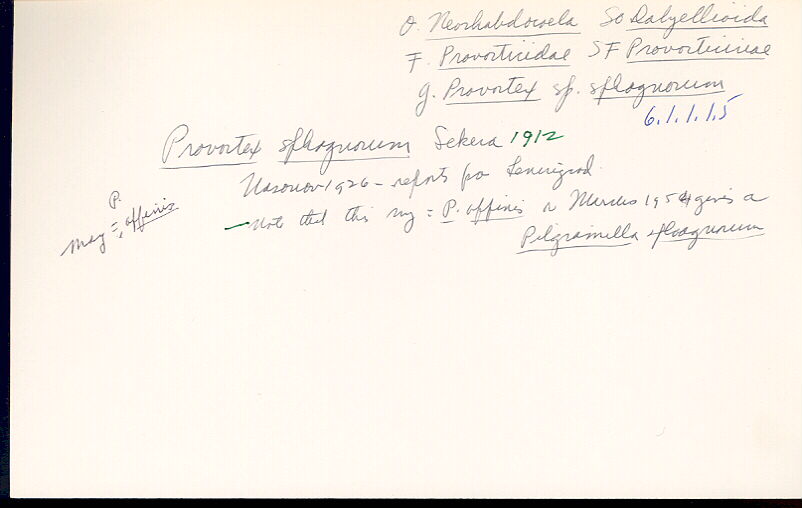 O. Neorhabdocoela SO Dalyellioida
F. Provorticidae SF Provorticinae
g. Provortex sp. sphagnorum
6.1.1.1.5
Provortex sphagnorum Sekera 1912
Nasonov 1926 - reports for Leningrad.
P.
may = affinis
- Note that this may = P. affinis or Marcus 1954 gives a
Pilgramilla sphagnorum